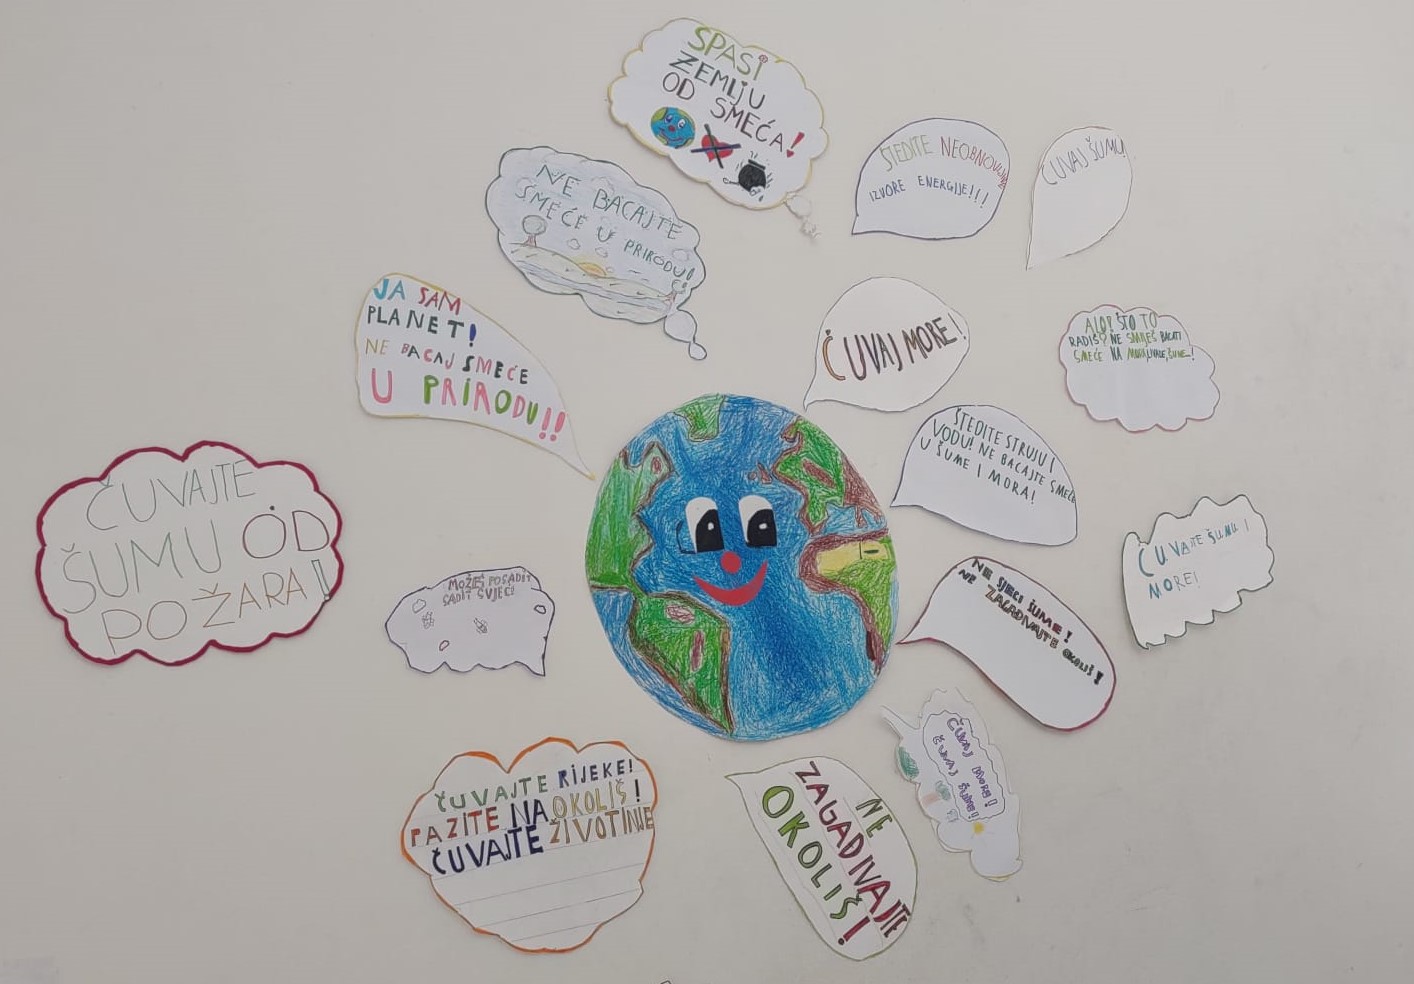 SPASI
ZEMLJU
OD SMEĆA!
NE BACAJTE
SMEĆE U PRIRODU!
ŠTEDITE NEOBNOVLJIVE
IZVORE ENERGIJE!!!
ČUVAJ ŠUMU
JA SAM
PLANET!
NE BACAJ SMEĆE
U PRIRODU!!
ČUVAJ MORE!
ALO! ŠTO TO
RADIŠ? NE SMIJEŠ BACATI
SMEĆE NA MORA, LIVADE, ŠUME...!
ŠTEDITE STRUJU I
VODU! NE BACAJTE SMEĆE
U ŠUME I MORA!
ČUVAJTE
ŠUMU OD
POŽARA!
ČUVAJTE ŠUMU I
MORE!
MOŽEŠ POSADIT
SADIT CVJEĆE!
NE SJECI ŠUME!
NE ZAGAĐIVAJTE OKOLIŠ!
ČUVAJ MORE!
ČUVAJ ŠUME!
ČUVAJTE RIJEKE!
PAZITE NA OKOLIŠ!
ČUVAJTE ŽIVOTINJE
NE
ZAGAĐIVAJTE
OKOLIŠ!